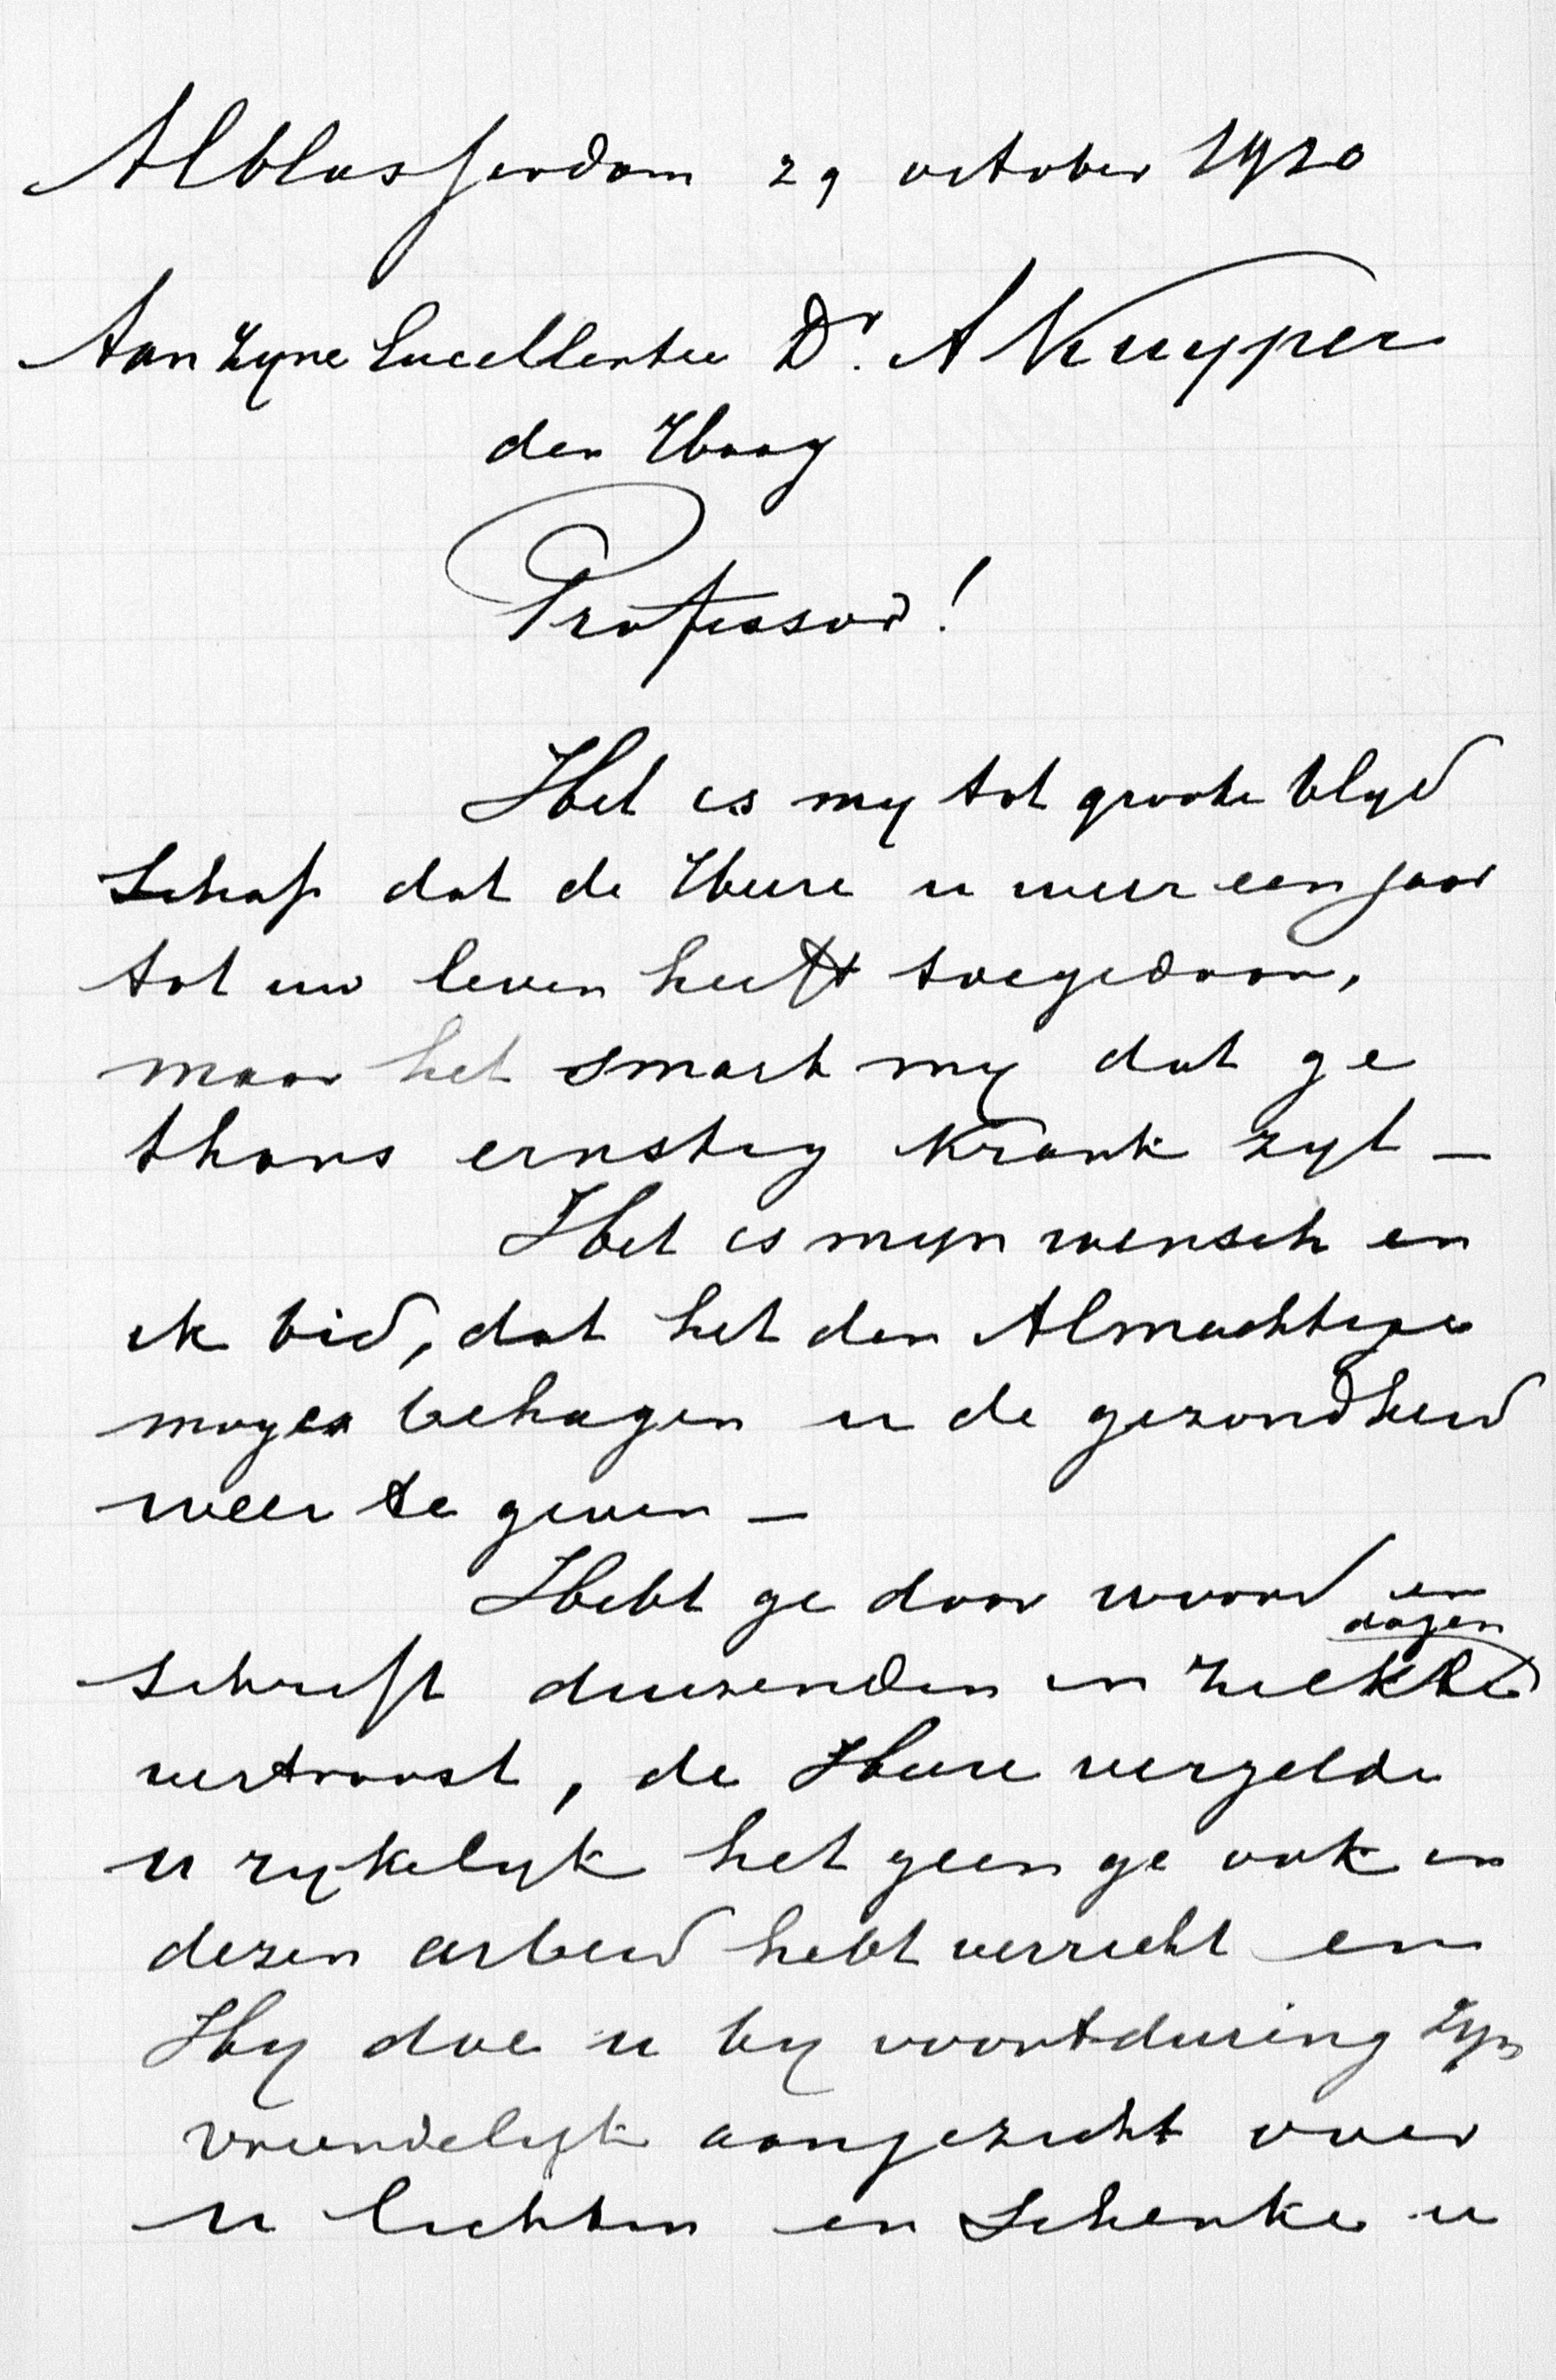 Alblasserdam 29 october 1920
Aan Zyne Excellentie Dr. A Kuyper
den Haag
Professor!
Het is my tot groote blyd
schap dat de Heere u weer een jaar
tot uw leven heeft toegedaan,
maar het smart my dat ge
thans ernstig krank zyt –
Het is myn wensch en
ik bid, dat het den Almachtige
moge behagen u de gezondheid
weer te geven –
Hebt ge door woord en
dagen
schrift duizenden in ziekte
vertroost, de Heere vergelde
u rykelyk het geen ge ook in
dezen arbeid hebt verricht en
Hy doe u by voortduring Zyn
vriendelyk aangezicht over
u lichten en schenke u